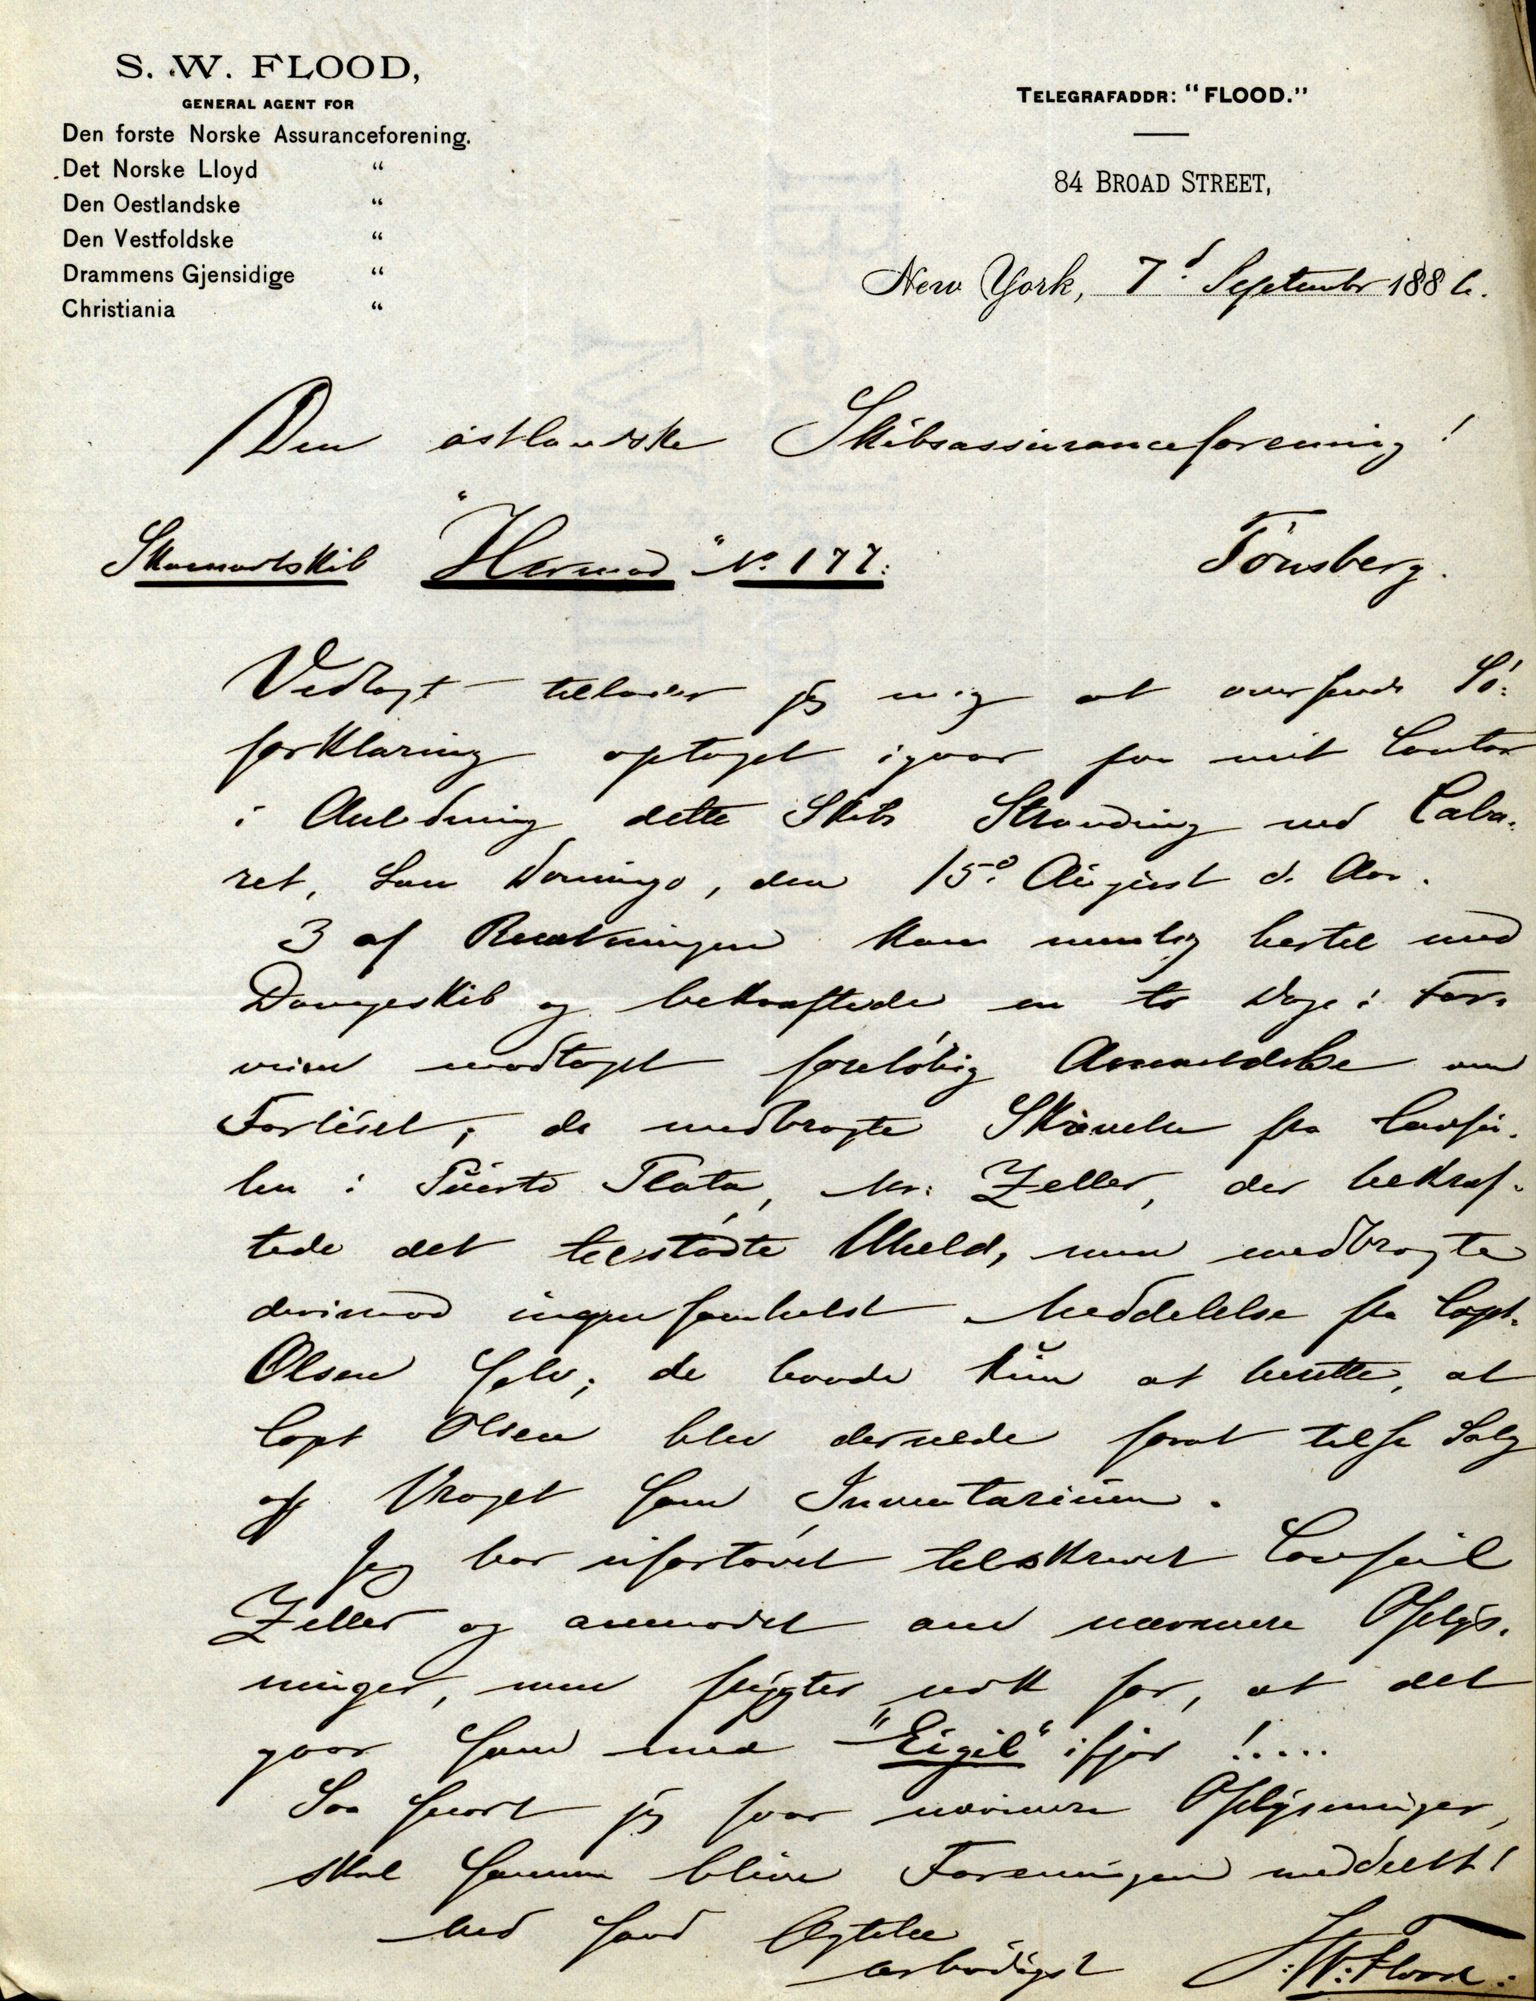 S. W. FLOOD,
GENERAL AGENT FOR
Den forste Norske Assuranceforening.
Det Norske Lloyd "
Den Oestlandske "
Den Vestfoldske "
Drammens Gjensidige "
Christiania "
TELEGRAFADDR: "FLOOD."
84 BROAD STREET,
New York, 7d. September 1886.
Den østlandske Skibsassuranceforening!
Tönsberg.
Skonnertskib "Hermod" No. 177:
Vedlagt tillader jeg mig at oversende Sö-
forklaring optaget igaar paa mit Contor
i Anledning dette Skibs Stranding ved Caba-
ret, San Domingo, den 15d. August d. Aar.
3 af Besætningen kom nemlig hertil med
Dampskib og bekræftede en to Dage i For-
veien modtaget foreløbig Anmeldelse om
Forliset; de medbragte Skrivelse fra Consu-
len i Puerto Plata, Mr. Zeller, der bekræf-
tede det tilstødte Uheld, men medbragte
derimod ingensomhelst Meddelelse fra Capt.
Olsen selv; de havde kun at berette, at
Capt Olsen blev dernede for at tilse Salg
af Vraget som Inventarium.
Jeg har ufortøvet tilskrevet Consul
Zeller og anmodet om nærmere Oplys-
ninger, men frygter nok for, at det
gaar som med "Eigil" ifjor!....
Saa snart jeg faar nærmere Oplysninger,
skal samme blive Foreningen meddeelt!
Med sand Agtelse
ærbödigst S. W. Flood.